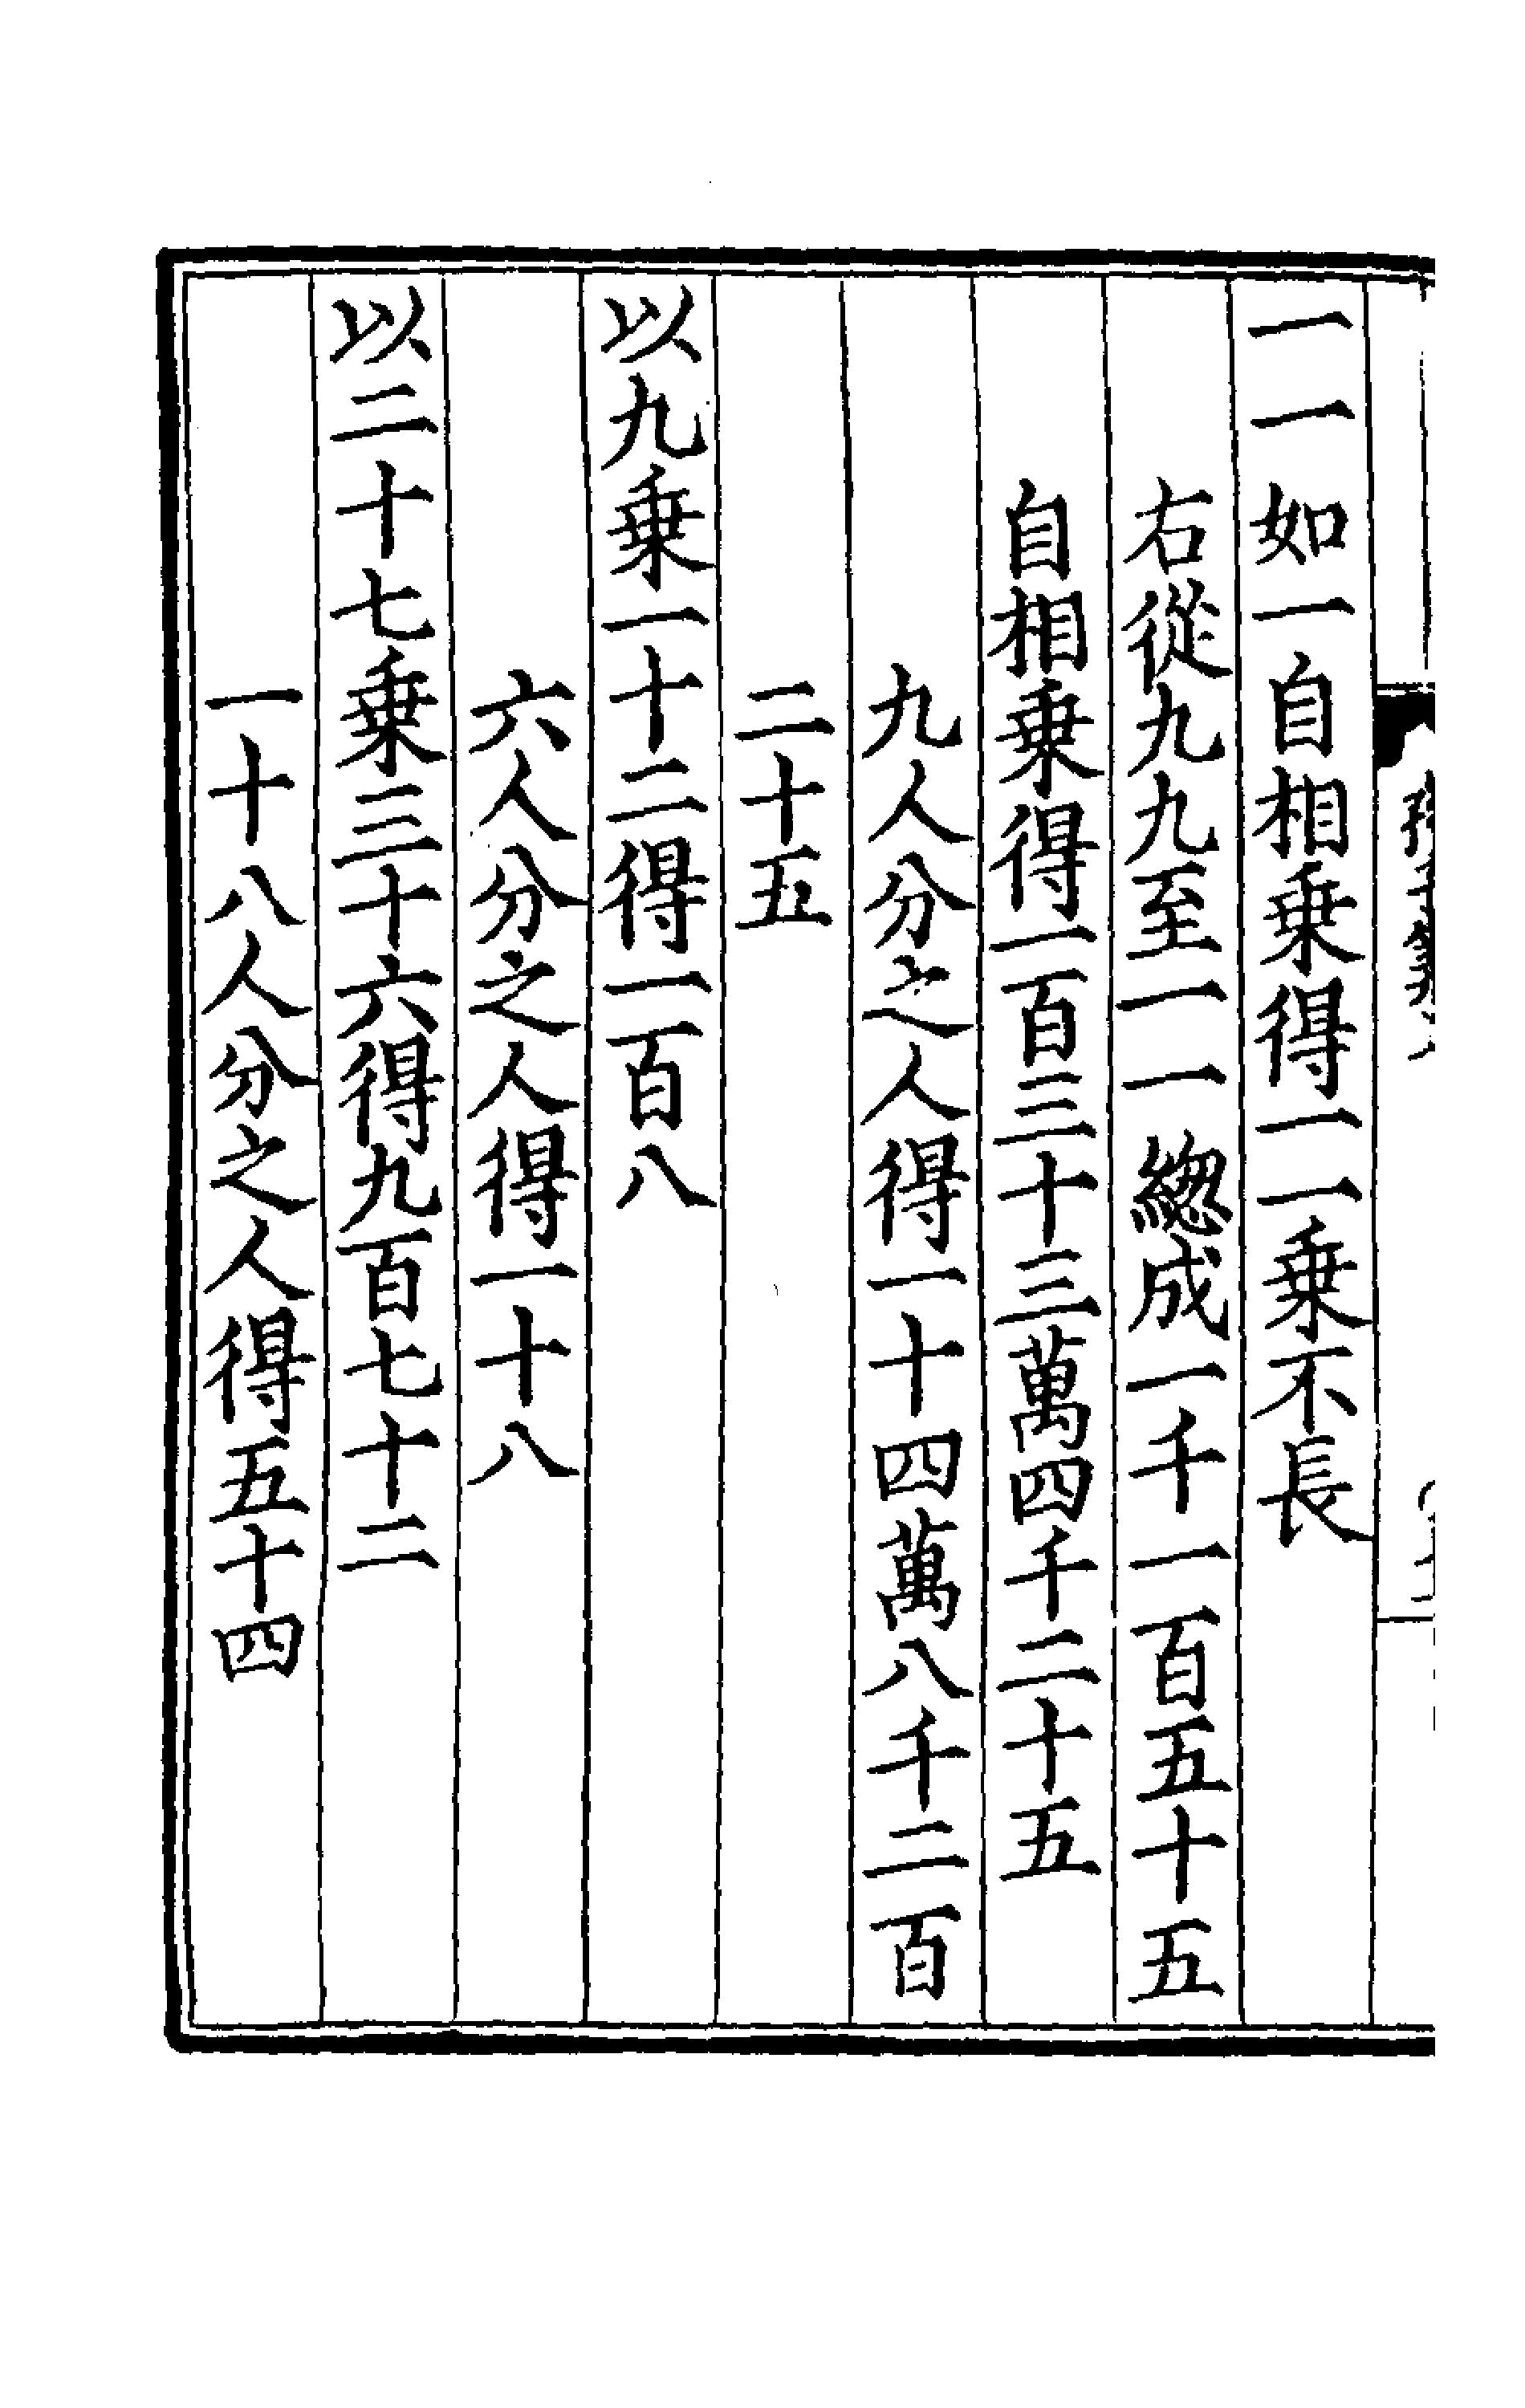 一一如一自相乗得一一乗不長
右從九九至一一總成一千一百五十五
自相乗得一百三十三萬四千二十五
九人分之人得一十四萬八千二百
二十五
以九乗一十二得一百八
六人分之人得一十八
以二十七乗三十六得九百七十二
一十八人分之人得五十四